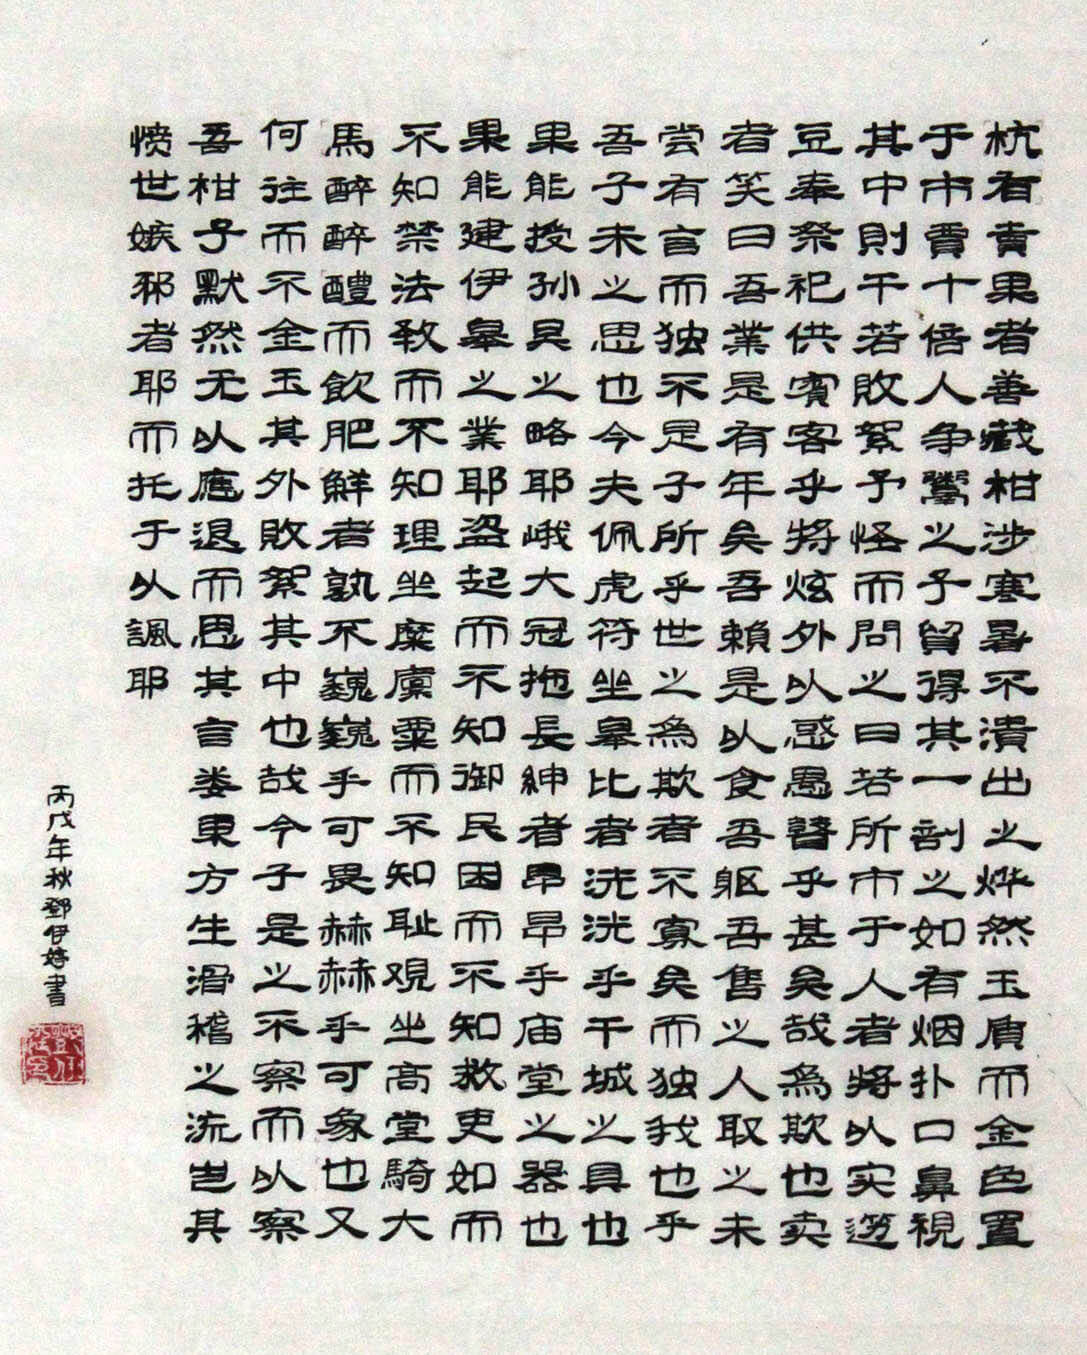 杭有賣果者善藏柑涉寒暑不潰出之烨然玉質而金色置
于市賈十倍人争鬻之予貿得其一剖之如有烟扑口鼻視
其中則干若敗絮予怪而問之曰若所市于人者將以实籩
豆奉祭祀供賓客乎將炫外以惑愚瞽乎甚矣哉為欺也卖
者笑曰吾業是有年矣吾賴是以食吾躯吾售之人取之未
尝有言而独不是子所乎世之為欺者不寡矣而独我也乎
吾子未之思也今夫佩虎符坐皋比者洸洸乎干城之具也
果能授孙吴之略耶峨大冠拖長紳者昂昂乎庙堂之器也
果能建伊皋之業耶盗起而不知御民困而不知救吏如而
不知禁法致而不知理坐糜廩粟而不知耻观坐高堂騎大
馬醉醉醴而飲肥鮮者孰不巍巍乎可畏赫赫乎可象也又
何往而不金玉其外敗絮其中也哉今子是之不察而以察
吾柑予默然无以應退而思其言类東方生滑稽之流岂其
愤世嫉邪者耶而托于以諷耶
丙戊年秋鄧伊婷書